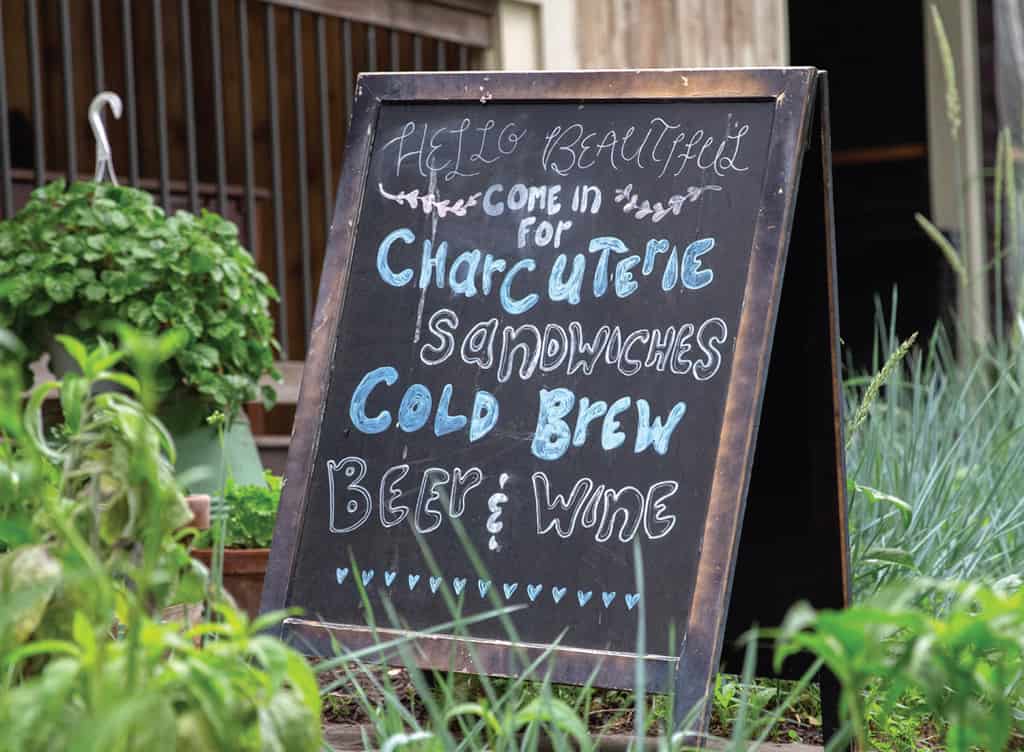 HELLO BEAUTIFUL
COME IN
FOR
CHArCUTerIE
SanDWICHES
COLD BreW
BEEr & WINE